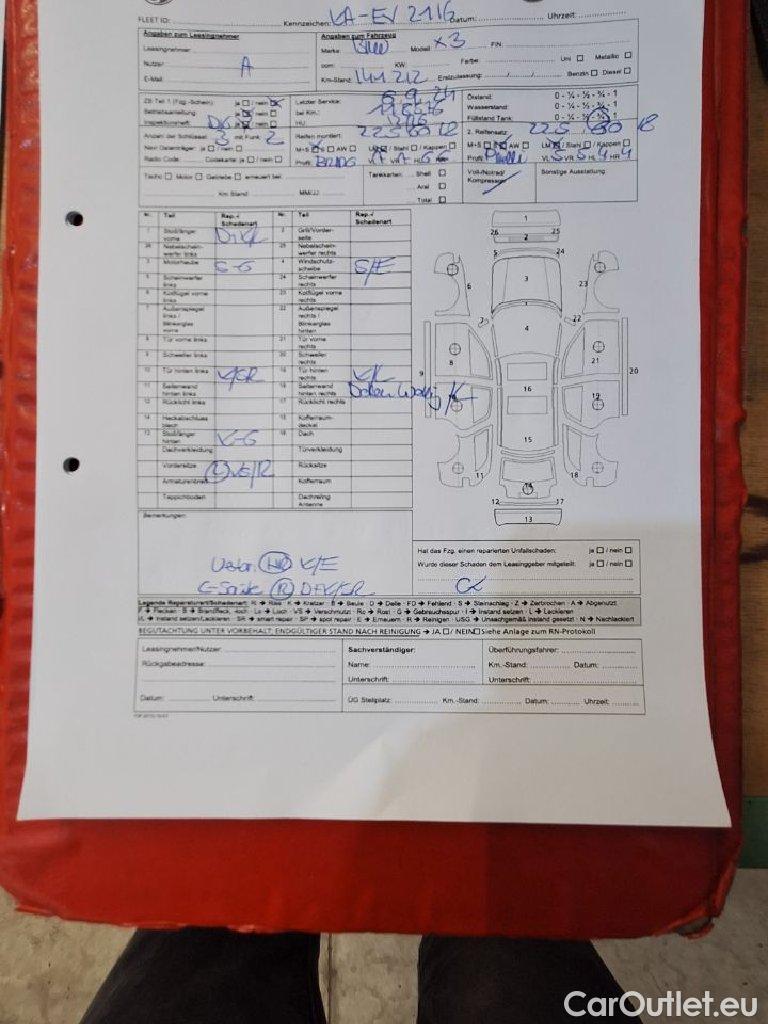 FLEET ID: Kennzeichen: KA-EV 2116 Datum: Uhrzeit:
Angaben zum Leasingnehmer Angaben zum Fahrzeug
Leasingnehmer: Marke BMW Modell X3 FIN:
Nutzer: A ccm: KW: Farbe: Uni Metallic
E-Mail: Km-Stand: 141 212 Erstzulassung: Benzin Diesel
ZB Teil 1 (Fzg.-Schein) ja / nein Letzter Service: Ölstand: 0 - ¼ - ½ - ¾ - 1
Betriebsanleitung ja / nein bei Km.: Wasserstand: 0 - ¼ - ½ - ¾ - 1
Inspektionsheft: ja / nein HU: Füllstand Tank: 0 - ¼ - ½ - ¾ - 1
Anzahl der Schlüssel: 3 mit Funk: 2 Reifen montiert: 225 60 18 2. Reifensatz: 225 60 18
Navi Datenträger: ja / nein M+S AW LM / Stahl / Kappen M+S AW LM / Stahl / Kappen
Radio Code: Codekarte: ja / nein Profil: Profil:
Tacho Motor Getriebe erneuert bei: Tankkarten: Shell Voll-/Notrad/ Sonstige Ausstattung:
Km Stand: MM/JJ: Aral Kompressor
Total
Nr. Teil Rep.-/ Schadenart Nr. Teil Rep.-/ Schadenart
1 Stoßfänger vorne 2 Grill/Vorderseite
26 Nebelscheinwerfer links 25 Nebelscheinwerfer rechts
3 Motorhaube S-G 4 Windschutzscheibe S/E
5 Scheinwerfer links 24 Scheinwerfer rechts
6 Kotflügel vorne links 23 Kotflügel vorne rechts
7 Außenspiegel links / Blinkerglas vorne 22 Außenspiegel rechts / Blinkerglas hinten
8 Tür vorne links 21 Tür vorne rechts
9 Schweller links 20 Schweller rechts
10 Tür hinten links K/SR 19 Tür hinten rechts K/L
11 Seitenwand hinten links 18 Seitenwand hinten rechts
12 Rücklicht links 17 Rücklicht rechts
14 Heckabschlussblech 15 Kofferraumdeckel
13 Stoßfänger hinten K-G 16 Dach
Dachverkleidung Türverkleidung
Vordersitze L VS/R Rücksitze
Armaturenbrett Kofferraum
Teppichboden Dachreling Antenne
1
26 25
2
5 24
6 3 23
7 22
4
8 21
9 20
10 16 19
11 15 18
14
12 17
13
Bemerkungen:
K/E
R
Hat das Fzg. einen reparierten Unfallschaden: ja / nein
Wurde dieser Schaden dem Leasinggeber mitgeteilt: ja / nein
Legende Reparaturart/Schadenart: R → Riss · K → Kratzer · B → Beule · D → Delle · FD → Fehlend · S → Steinschlag · Z → Zerbrochen · A → Abgenutzt
F → Flecken · B → Brandfleck, -loch · Lo → Loch · VS → Verschmutzt · Ro → Rost · G → Gebrauchsspur · I → Instand setzen · L → Lackieren
I/L → Instand setzen/Lackieren · SR → smart repair · SP → spot repair · E → Erneuern · R → Reinigen · USG → Unsachgemäß instand gesetzt · N → Nachlackiert
BEGUTACHTUNG UNTER VORBEHALT; ENDGÜLTIGER STAND NACH REINIGUNG → JA / NEIN Siehe Anlage zum RN-Protokoll
Leasingnehmer/Nutzer: Sachverständiger: Überführungsfahrer:
Rückgabeadresse: Name: Km.-Stand: Datum:
Unterschrift: Unterschrift:
Datum: Unterschrift: ÜG Stellplatz: Km.-Stand: Datum: Uhrzeit:
CarOutlet.eu